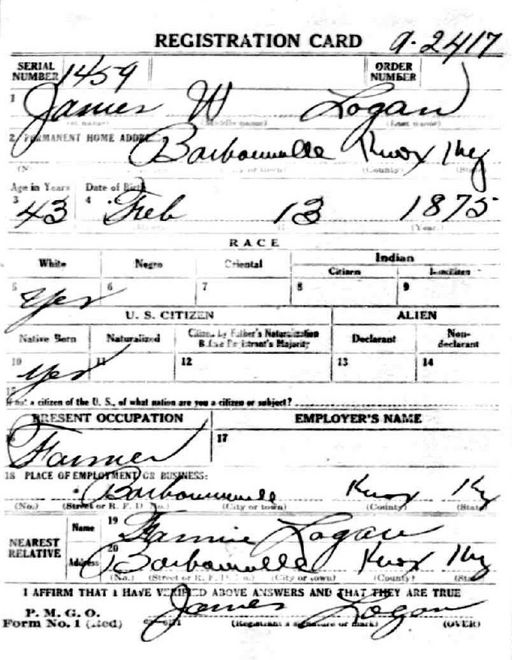 REGISTRATION CARD A-2417
SERIAL NUMBER 1459 ORDER NUMBER
1 James W Logan
(Middle name) (Last name)
2 PERMANENT HOME ADDRESS:
Barbourville Knox Ky
(County)
Age in Years Date of Birth
3 43 4 Feb 13 1875
(Year)
RACE
White Negro Oriental Indian
Citizen
5 Yes 6 7 8 9
U. S. CITIZEN ALIEN
Native Born Naturalized Citizen by Father's Naturalization Before Registrant's Majority Declarant Non-declarant
10 yes 11 12 13 14
15 If not a citizen of the U. S., of what nation are you a citizen or subject?
PRESENT OCCUPATION EMPLOYER'S NAME
Farmer 17
18 PLACE OF EMPLOYMENT OR BUSINESS:
Barbourville Knox Ky
(No.) (Street or R. F. D. No.) (City or town) (County) (State)
NEAREST RELATIVE Name 19 Fannie Logan
Address 20 Barbourville Knox Ky
(No.) (Street or R. F. D. No.) (City or town) (County) (State)
I AFFIRM THAT I HAVE VERIFIED ABOVE ANSWERS AND THAT THEY ARE TRUE
P. M. G. O.
Form No. 1 (Red) James Logan
(Registrant's signature or mark) (OVER)